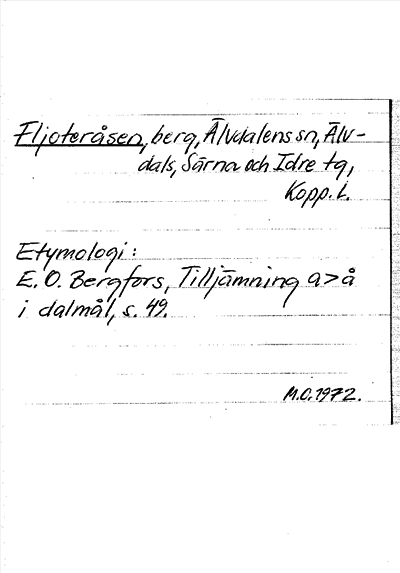 Fljoteråsen, berg, Älvdalens sn, Älv-
dals, Särna och Idre tg,
Kopp. l.
Etymologi:
E. O. Bergfors, Tilljämning a>å
i dalmål, s. 49.
M.O. 1972.